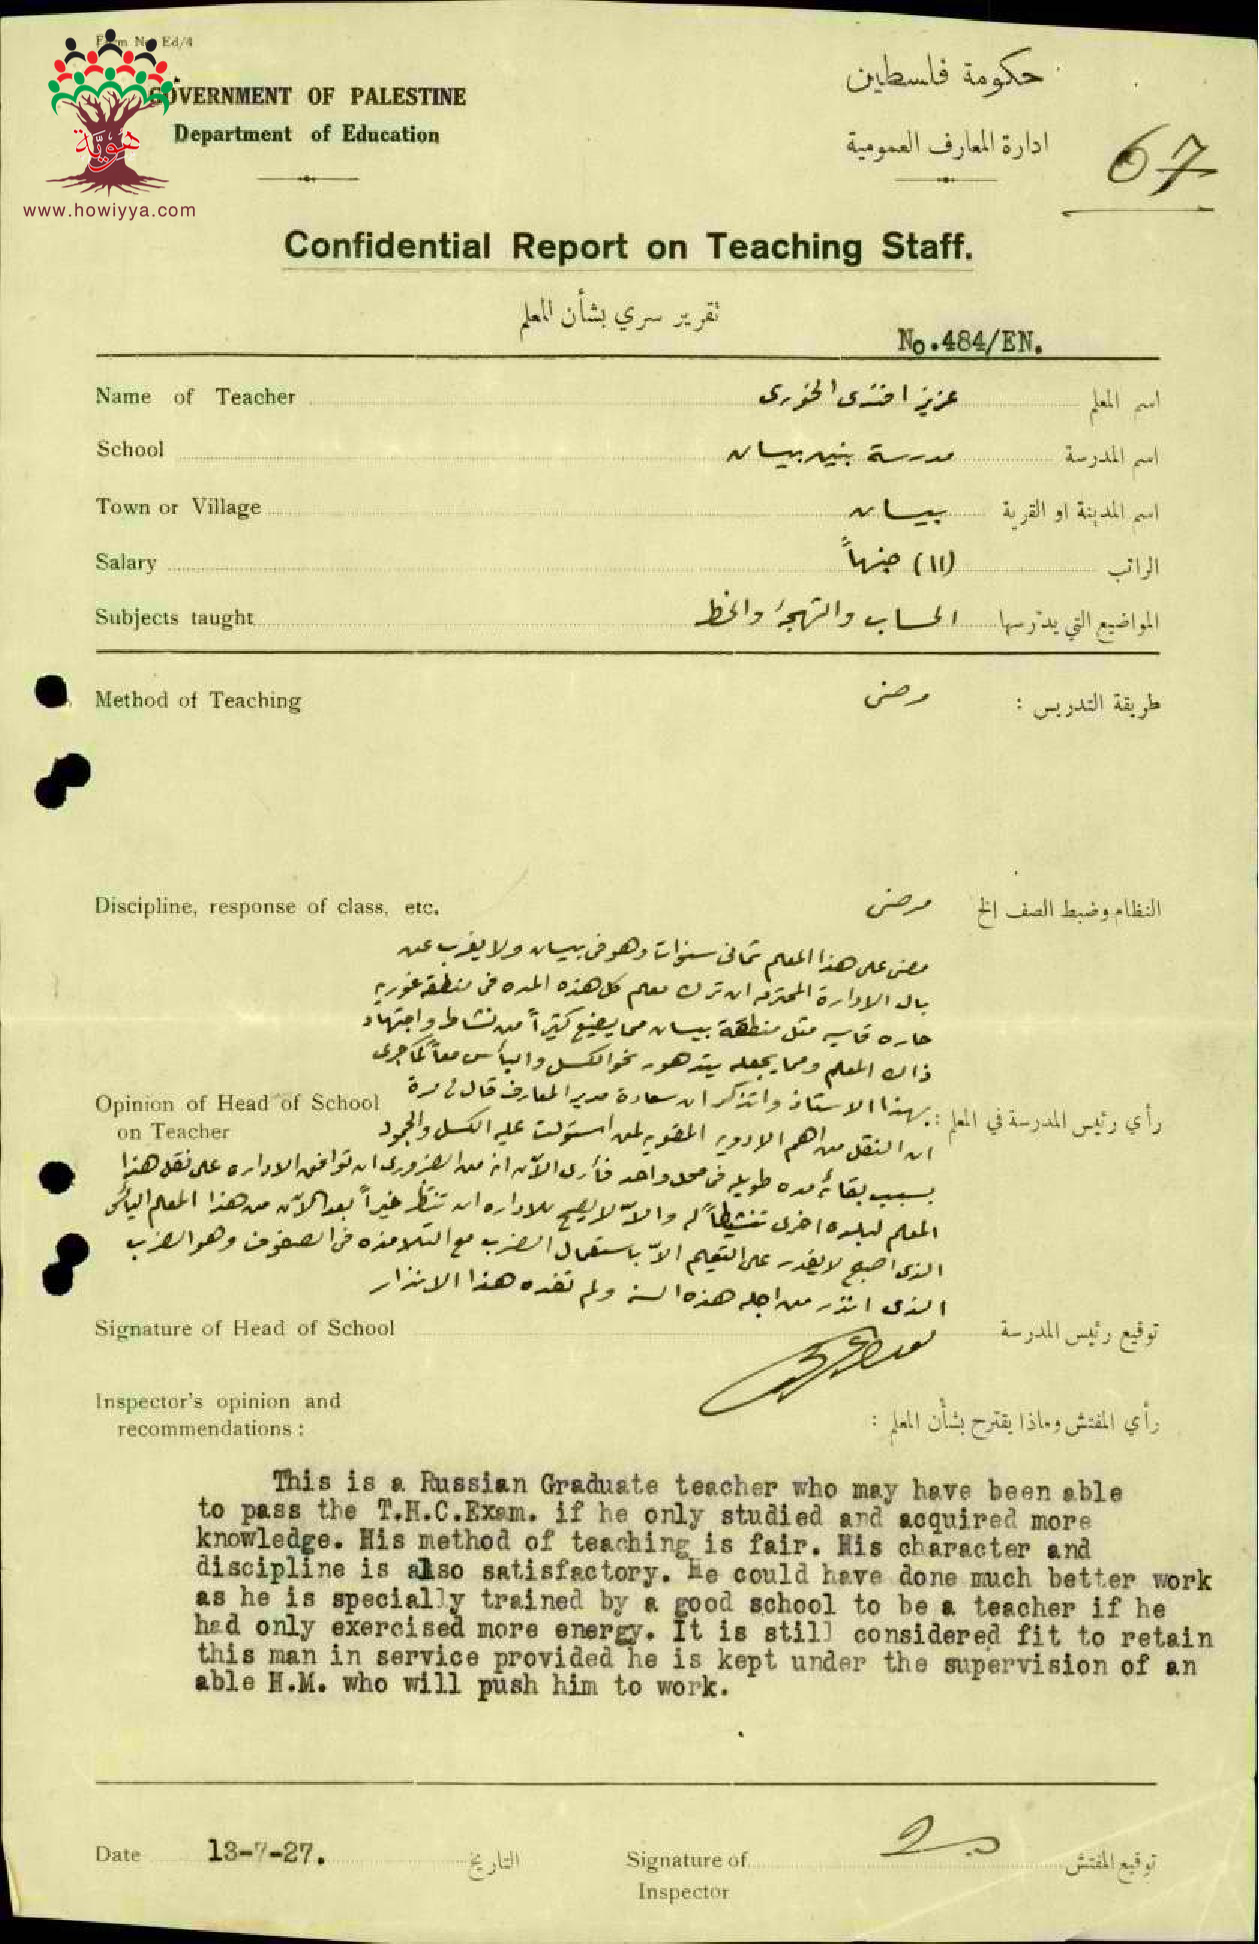 Form No. Ed/4
GOVERNMENT OF PALESTINE
Department of Education
حكومة فلسطين
ادارة المعارف العمومية
67
هوية
www.howiyya.com
Confidential Report on Teaching Staff.
تقرير سري بشأن المعلم
No.484/EN.
Name of Teacher عزيز افندى الخورى اسم المعلم
School مدرسة بنين بيسان اسم المدرسة
Town or Village بيسان اسم المدينة او القرية
Salary (١١) جنيهاً الراتب
Subjects taught الحساب والتهجئة والخط المواضيع التي يدرسها
Method of Teaching مرضى طريقة التدريس :
Discipline, response of class, etc. مرضى النظام وضبط الصف الخ
مضى على هذا المعلم ثمانى سنوات وهو فى بيسان ولا يغرب عن
بال الادارة المحترمه ان ترك معلم كل هذه المده فى منطقة غوريه
حاره قاسيه مثل منطقة بيسان مما يضيع كثيراً من نشاط واجتهاد
ذاك المعلم ومما يجعله يتدهور نحو الكسل واليأس معاً كما جرى
بهذا الاستاذ واتذكر ان سعادة مدير المعارف قال لى مرة
Opinion of Head of School
on Teacher
رأي رئيس المدرسة في المعلم :
ان النقل من اهم الادويه المقويه لمن استولت عليه الكسل والجمود
بسبب بقائه مده طويله فى محل واحد فأرى الآن انه من الضرورى ان توافق الاداره على نقل هذا
المعلم لبلده اخرى تنشيطاً له والا لا يصح للاداره ان تنتظر خيراً بعد الآن من هذا المعلم اليائس
الذى اصبح لا يقدر على التعليم الاّ باستعمال الضرب مع التلامذه فى الصفوف وهو الضرب
الذى انذر من اجله هذه السنه ولم تفده هذا الانذار
Signature of Head of School توقيع رئيس المدرسة
Inspector's opinion and
recommendations :
رأي المفتش وماذا يقترح بشأن المعلم :
This is a Russian Graduate teacher who may have been able
to pass the T.H.C.Exam. if he only studied and acquired more
knowledge. His method of teaching is fair. His character and
discipline is also satisfactory. He could have done much better work
as he is specially trained by a good school to be a teacher if he
had only exercised more energy. It is still considered fit to retain
this man in service provided he is kept under the supervision of an
able H.M. who will push him to work.
Date 13-7-27. التاريخ
Signature of
Inspector
توقيع المفتش